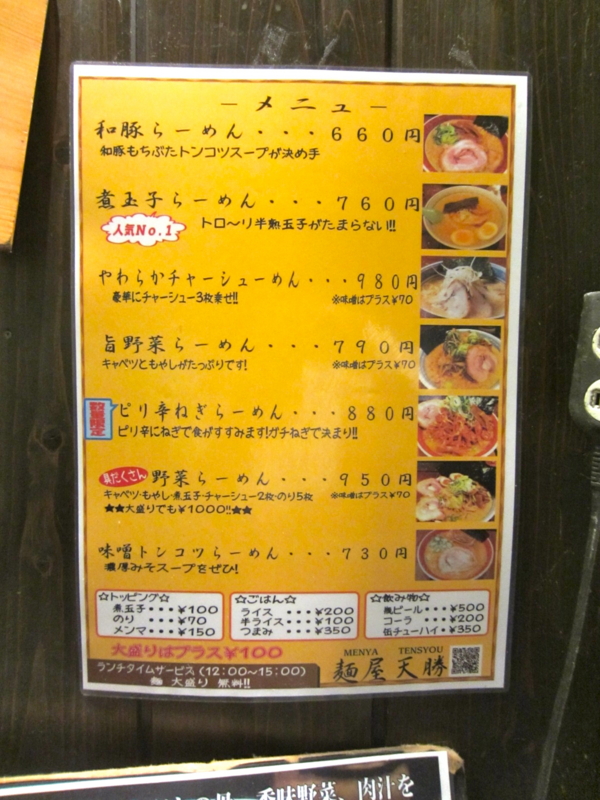 －メニュー－
和豚らーめん・・・６６０円
和豚もちぶたトンコツスープが決め手
煮玉子らーめん・・・７６０円
人気No.1
トロ～リ半熟玉子がたまらない!!
やわらかチャーシューめん・・・９８０円
豪華にチャーシュー3枚乗せ!!
※味噌はプラス¥70
旨野菜らーめん・・・７９０円
キャベツともやしがたっぷりです!
※味噌はプラス¥70
数量限定
ピリ辛ねぎらーめん・・・８８０円
ピリ辛にねぎで食がすすみます!ガチねぎで決まり!!
具だくさん
野菜らーめん・・・９５０円
キャベツ・もやし・煮玉子・チャーシュー2枚・のり5枚
※味噌はプラス¥70
★★大盛りでも¥1000!!★★
味噌トンコツらーめん・・・７３０円
濃厚みそスープをぜひ!
☆トッピング☆
煮玉子・・・¥100
のり・・・¥70
メンマ・・・¥150
☆ごはん☆
ライス・・・¥200
半ライス・・・¥100
つまみ・・・¥350
☆飲み物☆
瓶ビール・・・¥500
コーラ・・・¥200
缶チューハイ・・¥350
大盛りはプラス¥100
ランチタイムサービス(12:00～15:00)
麺 大盛り 無料!!
MENYA TENSYOU
麺屋天勝
香味野菜、肉汁を